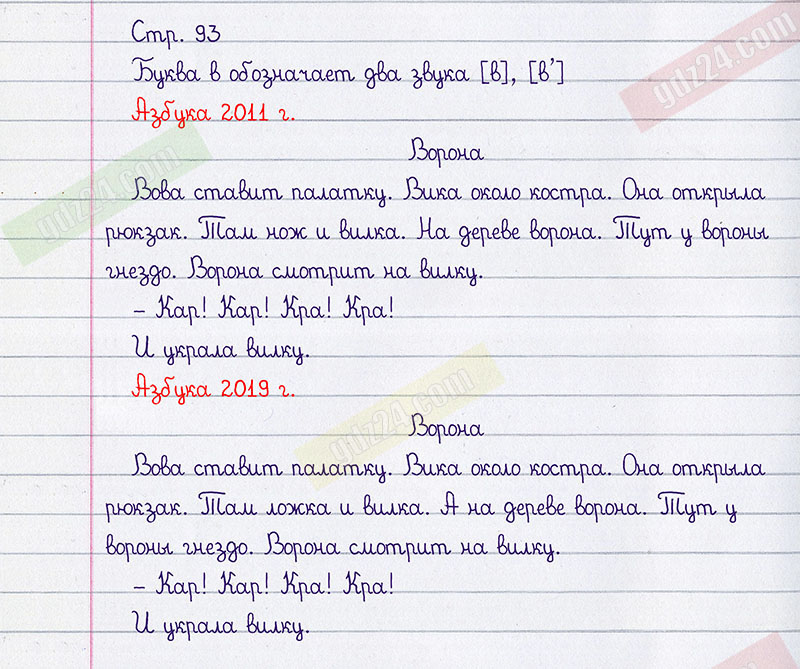 Стр. 93
Буква в обозначает два звука [в], [в’]
Азбука 2011 г.
Ворона
Вова ставит палатку. Вика около костра. Она открыла
рюкзак. Там нож и вилка. На дереве ворона. Тут у вороны
гнездо. Ворона смотрит на вилку.
– Кар! Кар! Кра! Кра!
И украла вилку.
Азбука 2019 г.
Ворона
Вова ставит палатку. Вика около костра. Она открыла
рюкзак. Там ложка и вилка. А на дереве ворона. Тут у
вороны гнездо. Ворона смотрит на вилку.
– Кар! Кар! Кра! Кра!
И украла вилку.
gdz24.com
gdz24.com
gdz24.com